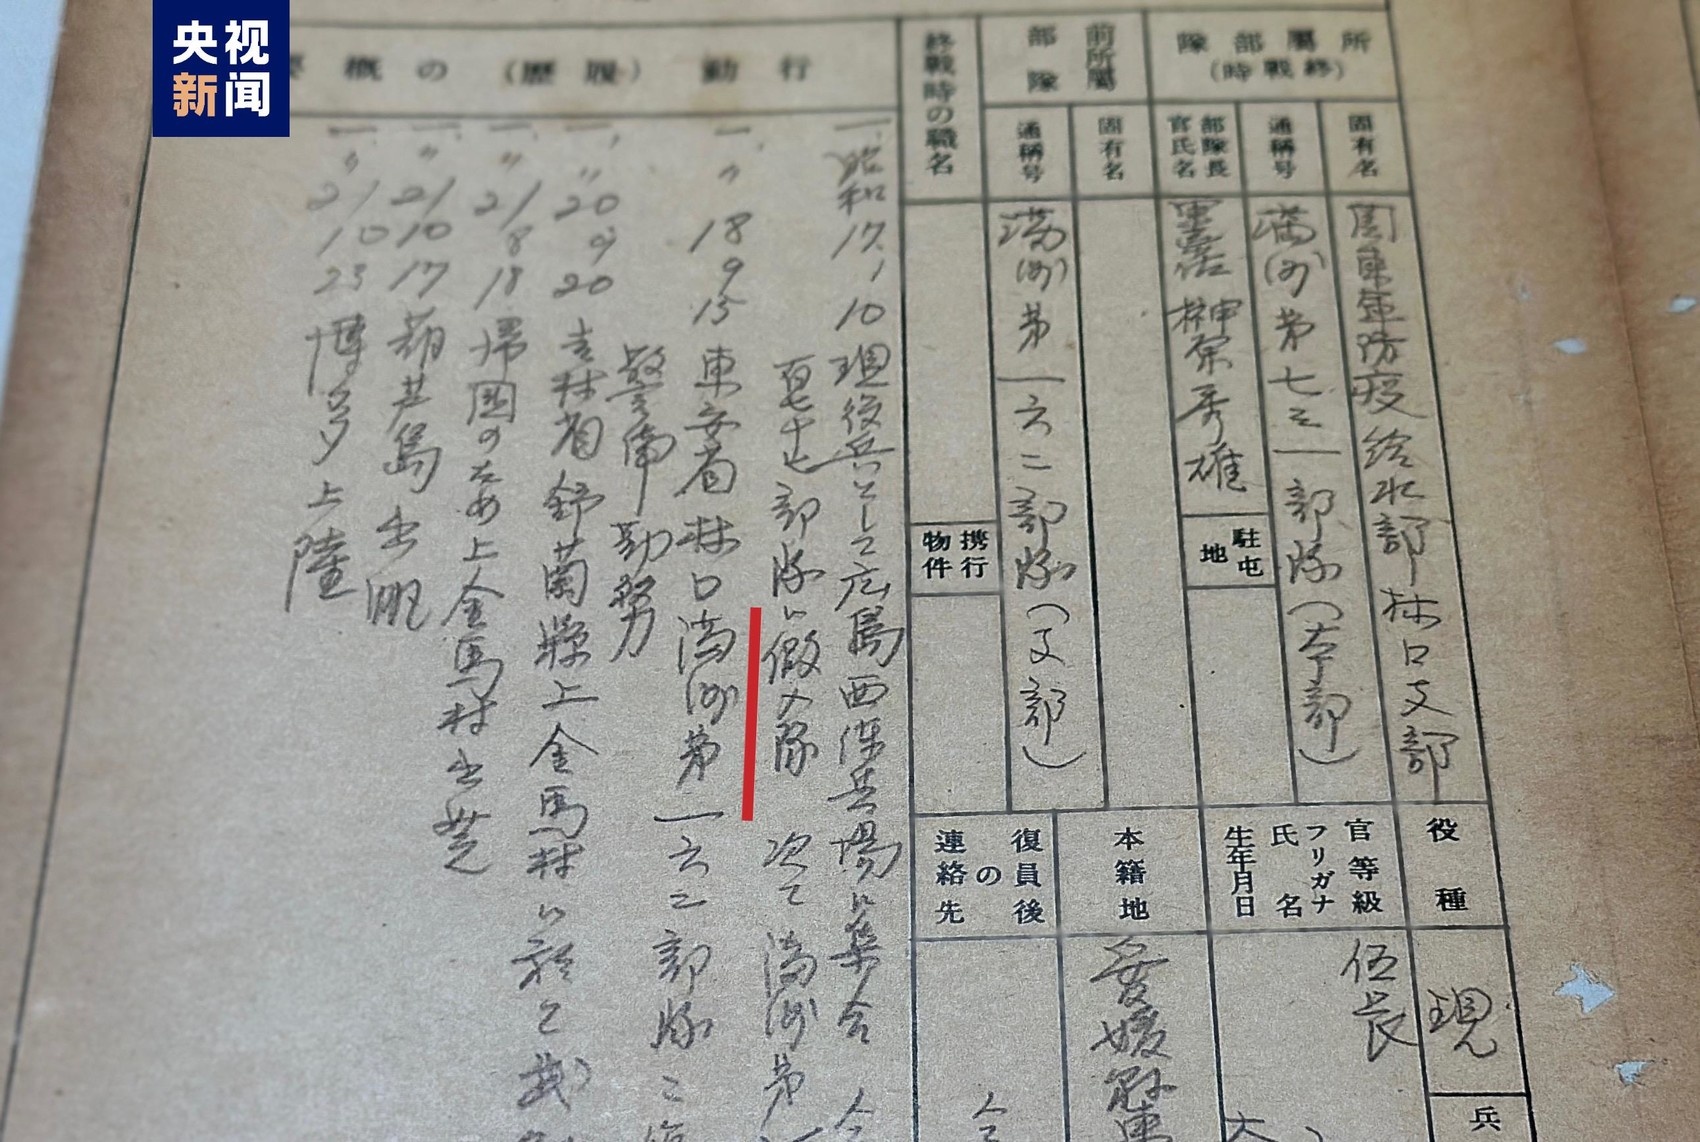 央视
新闻
所屬部隊
(終戰時)
固有名
関東軍防疫給水部林口支部
通稱号
満洲第七三一部隊(本部)
部隊長
官氏名
軍医 榊原秀雄
駐屯
地
前所屬
部隊
固有名
通稱号
満洲第一六二部隊(支部)
終戰時の職名
携行
物件
行動(履歴)の概要
一、昭和17、1、10 現役兵として広島西練兵場に集合
部隊に仮入隊 次で満洲第
一、〃 18 9 15 東安省林口満洲第一六二部隊に
勤務
一、〃 20 9 20 吉林省舒蘭縣上金馬村に於て武
一、〃 21 8 18 帰国のため上金馬村出発
一、〃 21 10 17 葫芦島出帆
一、〃 21 10 23 博多上陸
役種
現
兵
官等級
フリガナ
氏名
生年月日
伍長
本籍地
愛媛縣
復員後
の
連絡先